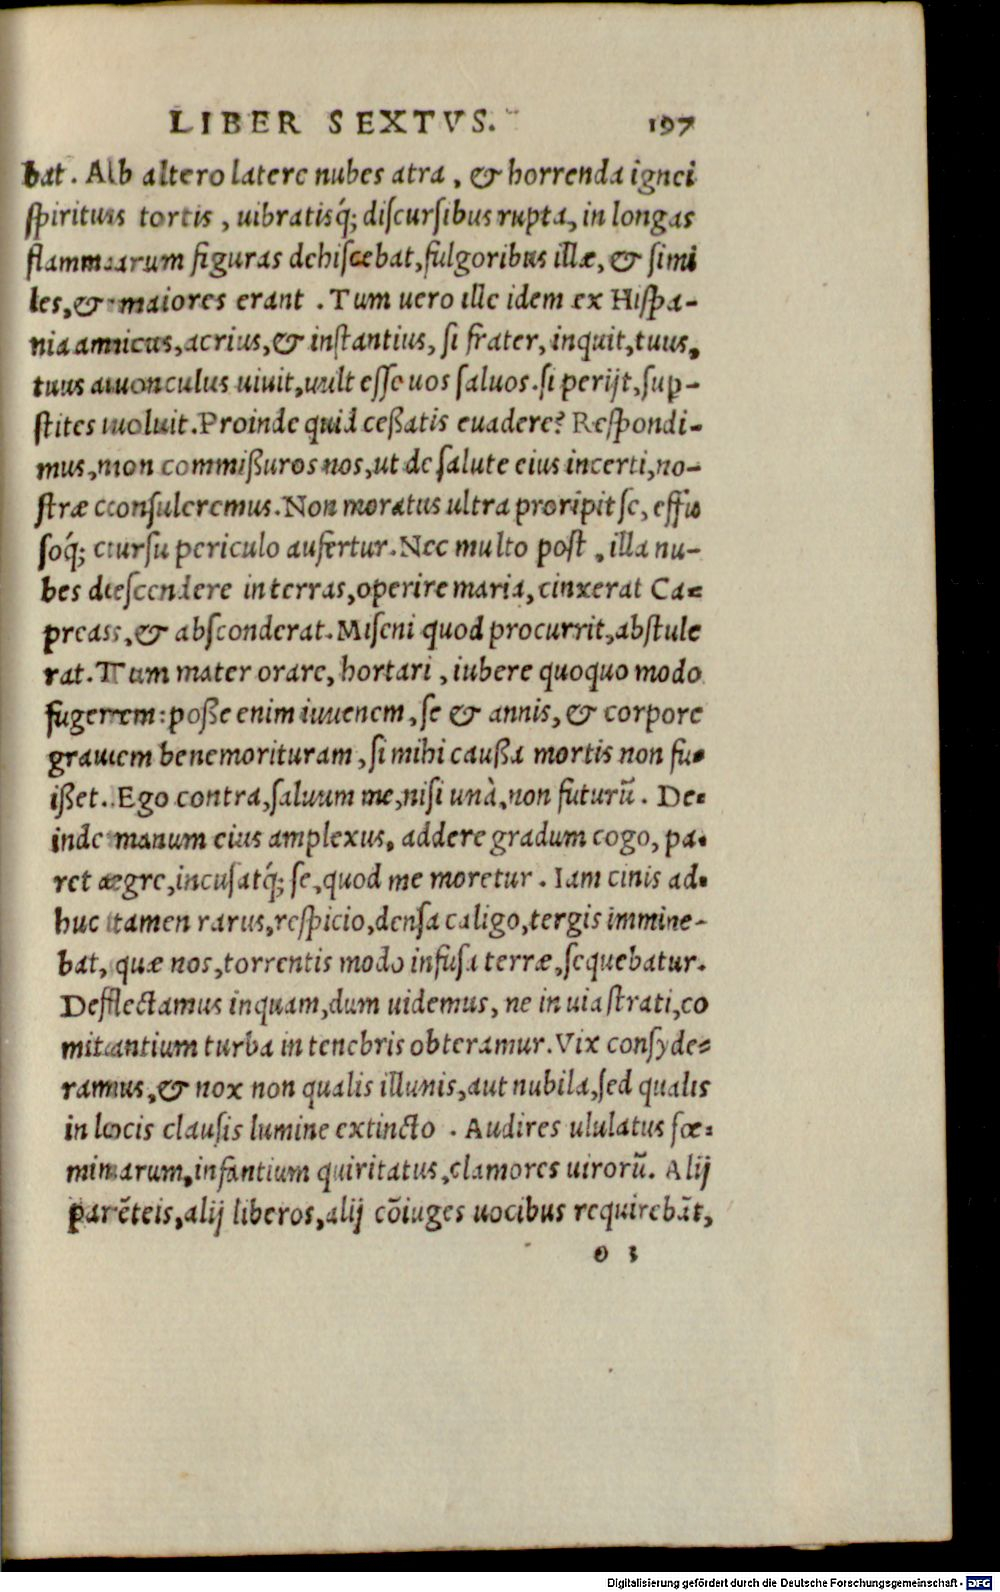 LIBER SEXTVS. 197
bat. Ab altero latere nubes atra, & horrenda ignei
spiritus tortis, uibratisq́; discursibus rupta, in longas
flammarum figuras dehiscebat, fulgoribus illæ, & simi
les, & maiores erant. Tum uero ille idem ex Hispa-
nia amicus, acrius, & instantius, si frater, inquit, tuus,
tuus auonculus uiuit, uult esse uos saluos. si perijt, sup-
stites uoluit. Proinde quid ceßatis euadere? Respondi-
mus, non commißuros nos, ut de salute eius incerti, no-
stræ consuleremus. Non moratus ultra proripit se, effu
soq́; cursu periculo aufertur. Nec multo post, illa nu-
bes descendere in terras, operire maria, cinxerat Ca-
preas, & absconderat. Miseni quod procurrit, abstule
rat. Tum mater orare, hortari, iubere quoquo modo
fugerem: poße enim iuuenem, se & annis, & corpore
grauem bene morituram, si mihi caußa mortis non fu-
ißet. Ego contra, saluum me, nisi unà, non futurũ. De-
inde manum eius amplexus, addere gradum cogo, pa-
ret ægre, incusatq́; se, quod me moretur. Iam cinis ad-
huc tamen rarus, respicio, densa caligo, tergis immine-
bat, quæ nos, torrentis modo infusa terræ, sequebatur.
Deflectamus inquam, dum uidemus, ne in uia strati, co
mitantium turba in tenebris obteramur. Vix consyde-
ramus, & nox non qualis illunis, aut nubila, sed qualis
in locis clausis lumine extincto. Audires ululatus fœ-
minarum, infantium quiritatus, clamores uirorũ. Alij
parẽteis, alij liberos, alij cõiuges uocibus requirebãt,
o 3
Digitalisierung gefördert durch die Deutsche Forschungsgemeinschaft - DFG